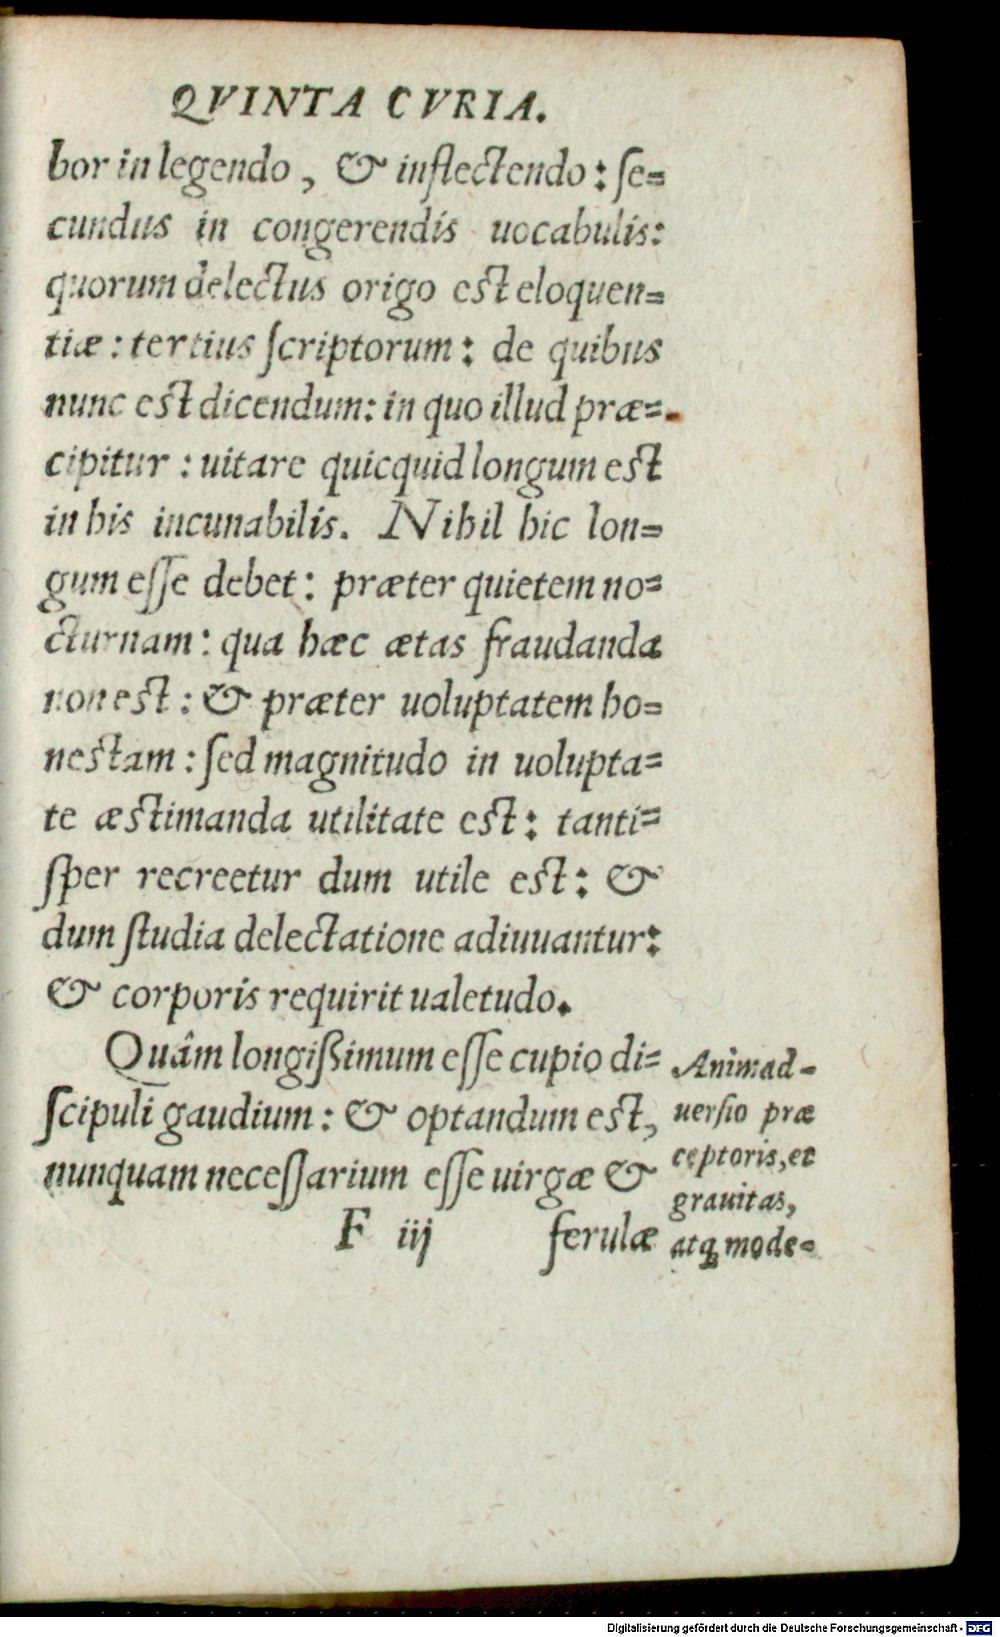 QVINTA CVRIA.
bor in legendo, & inflectendo: se=
cundus in congerendis uocabulis:
quorum delectus origo est eloquen=
tiæ: tertius scriptorum: de quibus
nunc est dicendum: in quo illud præ=
cipitur: uitare quicquid longum est
in his incunabilis. Nihil hic lon=
gum esse debet: præter quietem no=
cturnam: qua hæc ætas fraudanda
non est: & præter uoluptatem ho=
nestam: sed magnitudo in uolupta=
te æstimanda utilitate est: tanti=
sper recreetur dum utile est: &
dum studia delectatione adiuuantur:
& corporis requirit ualetudo.
Quâm longißimum esse cupio di=
scipuli gaudium: & optandum est,
nunquam necessarium esse uirgæ &
F iij ferulæ
Animad-
uersio præ
ceptoris, et
grauitas,
atq; mode-
Digitalisierung gefördert durch die Deutsche Forschungsgemeinschaft - DFG